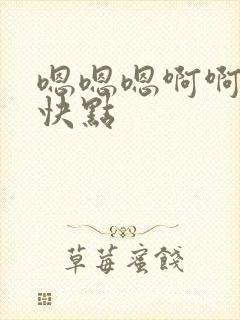 嗯嗯嗯啊啊
快點
草莓蜜餞